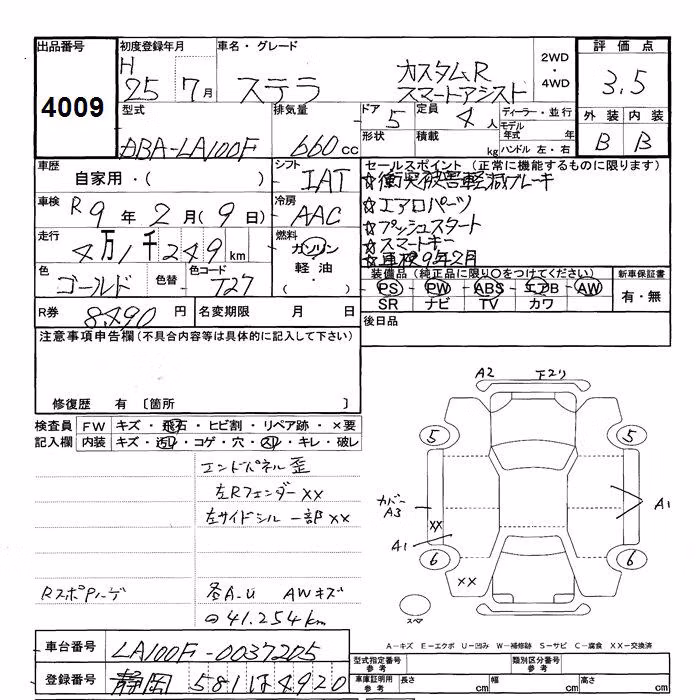 出品番号
4009
初度登録年月
H 25 7月
車名・グレード
ステラ
カスタムR
スマートアシスト
2WD
・
4WD
評価点
3.5
外装 内装
B B
型式
DBA-LA100F
排気量
660cc
ドア
5
形状
定員
4人
積載
kg
ディーラー・並行
モデル
年式 年
ハンドル 左・右
車歴
自家用・( )
シフト
IAT
車検
R9年2月(9日)
冷房
AAC
走行
4万1千249km
燃料
ガソリン
軽油
( ・ )
色
ゴールド
色替
色コード
T27
R券
8490円
名変期限 月 日
セールスポイント (正常に機能するものに限ります)
☆衝突被害軽減ブレーキ
☆エアロパーツ
☆プッシュスタート
☆スマートキー
☆車検9年2月
装備品 (純正品に限り○をつけてください)
PS PW ABS エアB AW
SR ナビ TV カワ
新車保証書
有・無
後日品
注意事項申告欄(不具合内容等は具体的に記入して下さい)
修復歴 有 〔箇所 〕
検査員
記入欄
FW キズ・飛石・ヒビ割・リペア跡・×要
内装 キズ・汚レ・コゲ・穴・スレ・キレ・破レ
エンドパネル歪
左RフェンダーXX
左サイドシル一部XX
各A.U AWキズ
41.254km
A2 下スリ
5 5
カバー
A3
XX
A1
A1
6 6
XX
スペア
A-キズ E-エクボ U-凹み W-補修跡 S-サビ C-腐食 XX-交換済
車台番号
LA100F-0037205
登録番号
静岡 581 は 4920
型式指定番号
参考
類別区分番号
参考
車庫証明用
参考
長さ cm
幅 cm
高さ cm